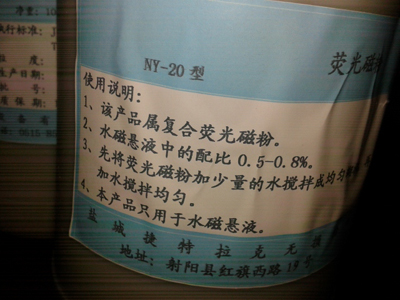 净重：10
执行标准：J
度：
生产日期：
号：
有保期：
0515-8
NY-20 型
荧光磁
使用说明：
1、该产品属复合荧光磁粉。
2、水磁悬液中的配比 0.5-0.8%。
3、先将荧光磁粉加少量的水搅拌成均匀
加水搅拌均匀。
4、本产品只用于水磁悬液。
盐城捷特拉克无损
地址：射阳县红旗西路19号